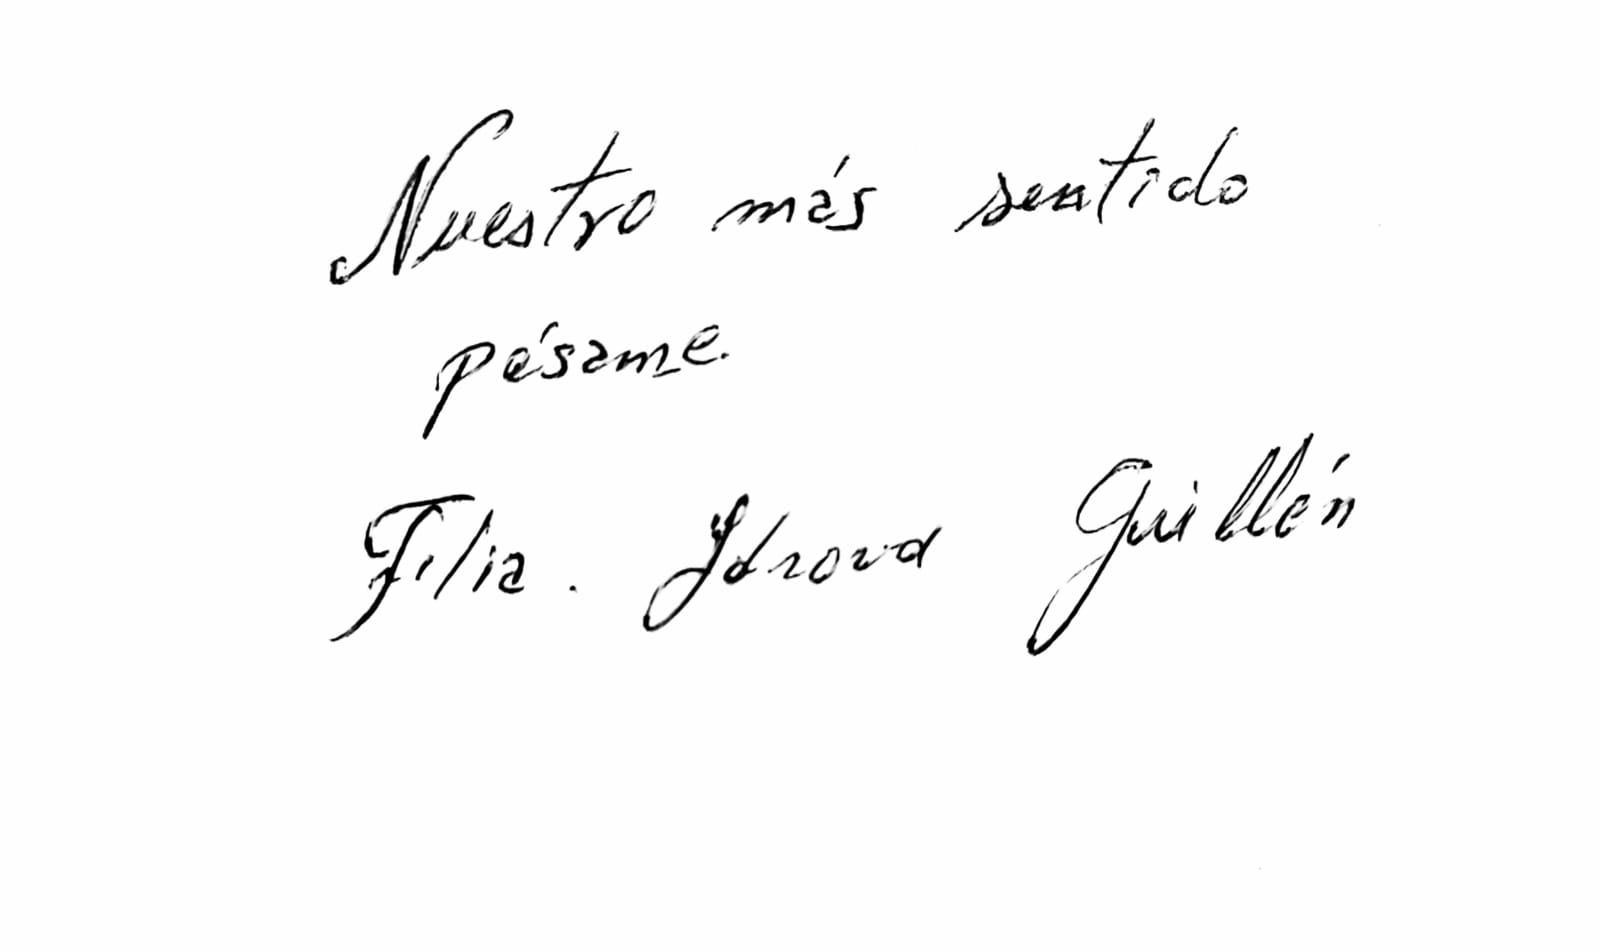 Nuestro más sentido
pésame.
Filia. Idrova Guillén